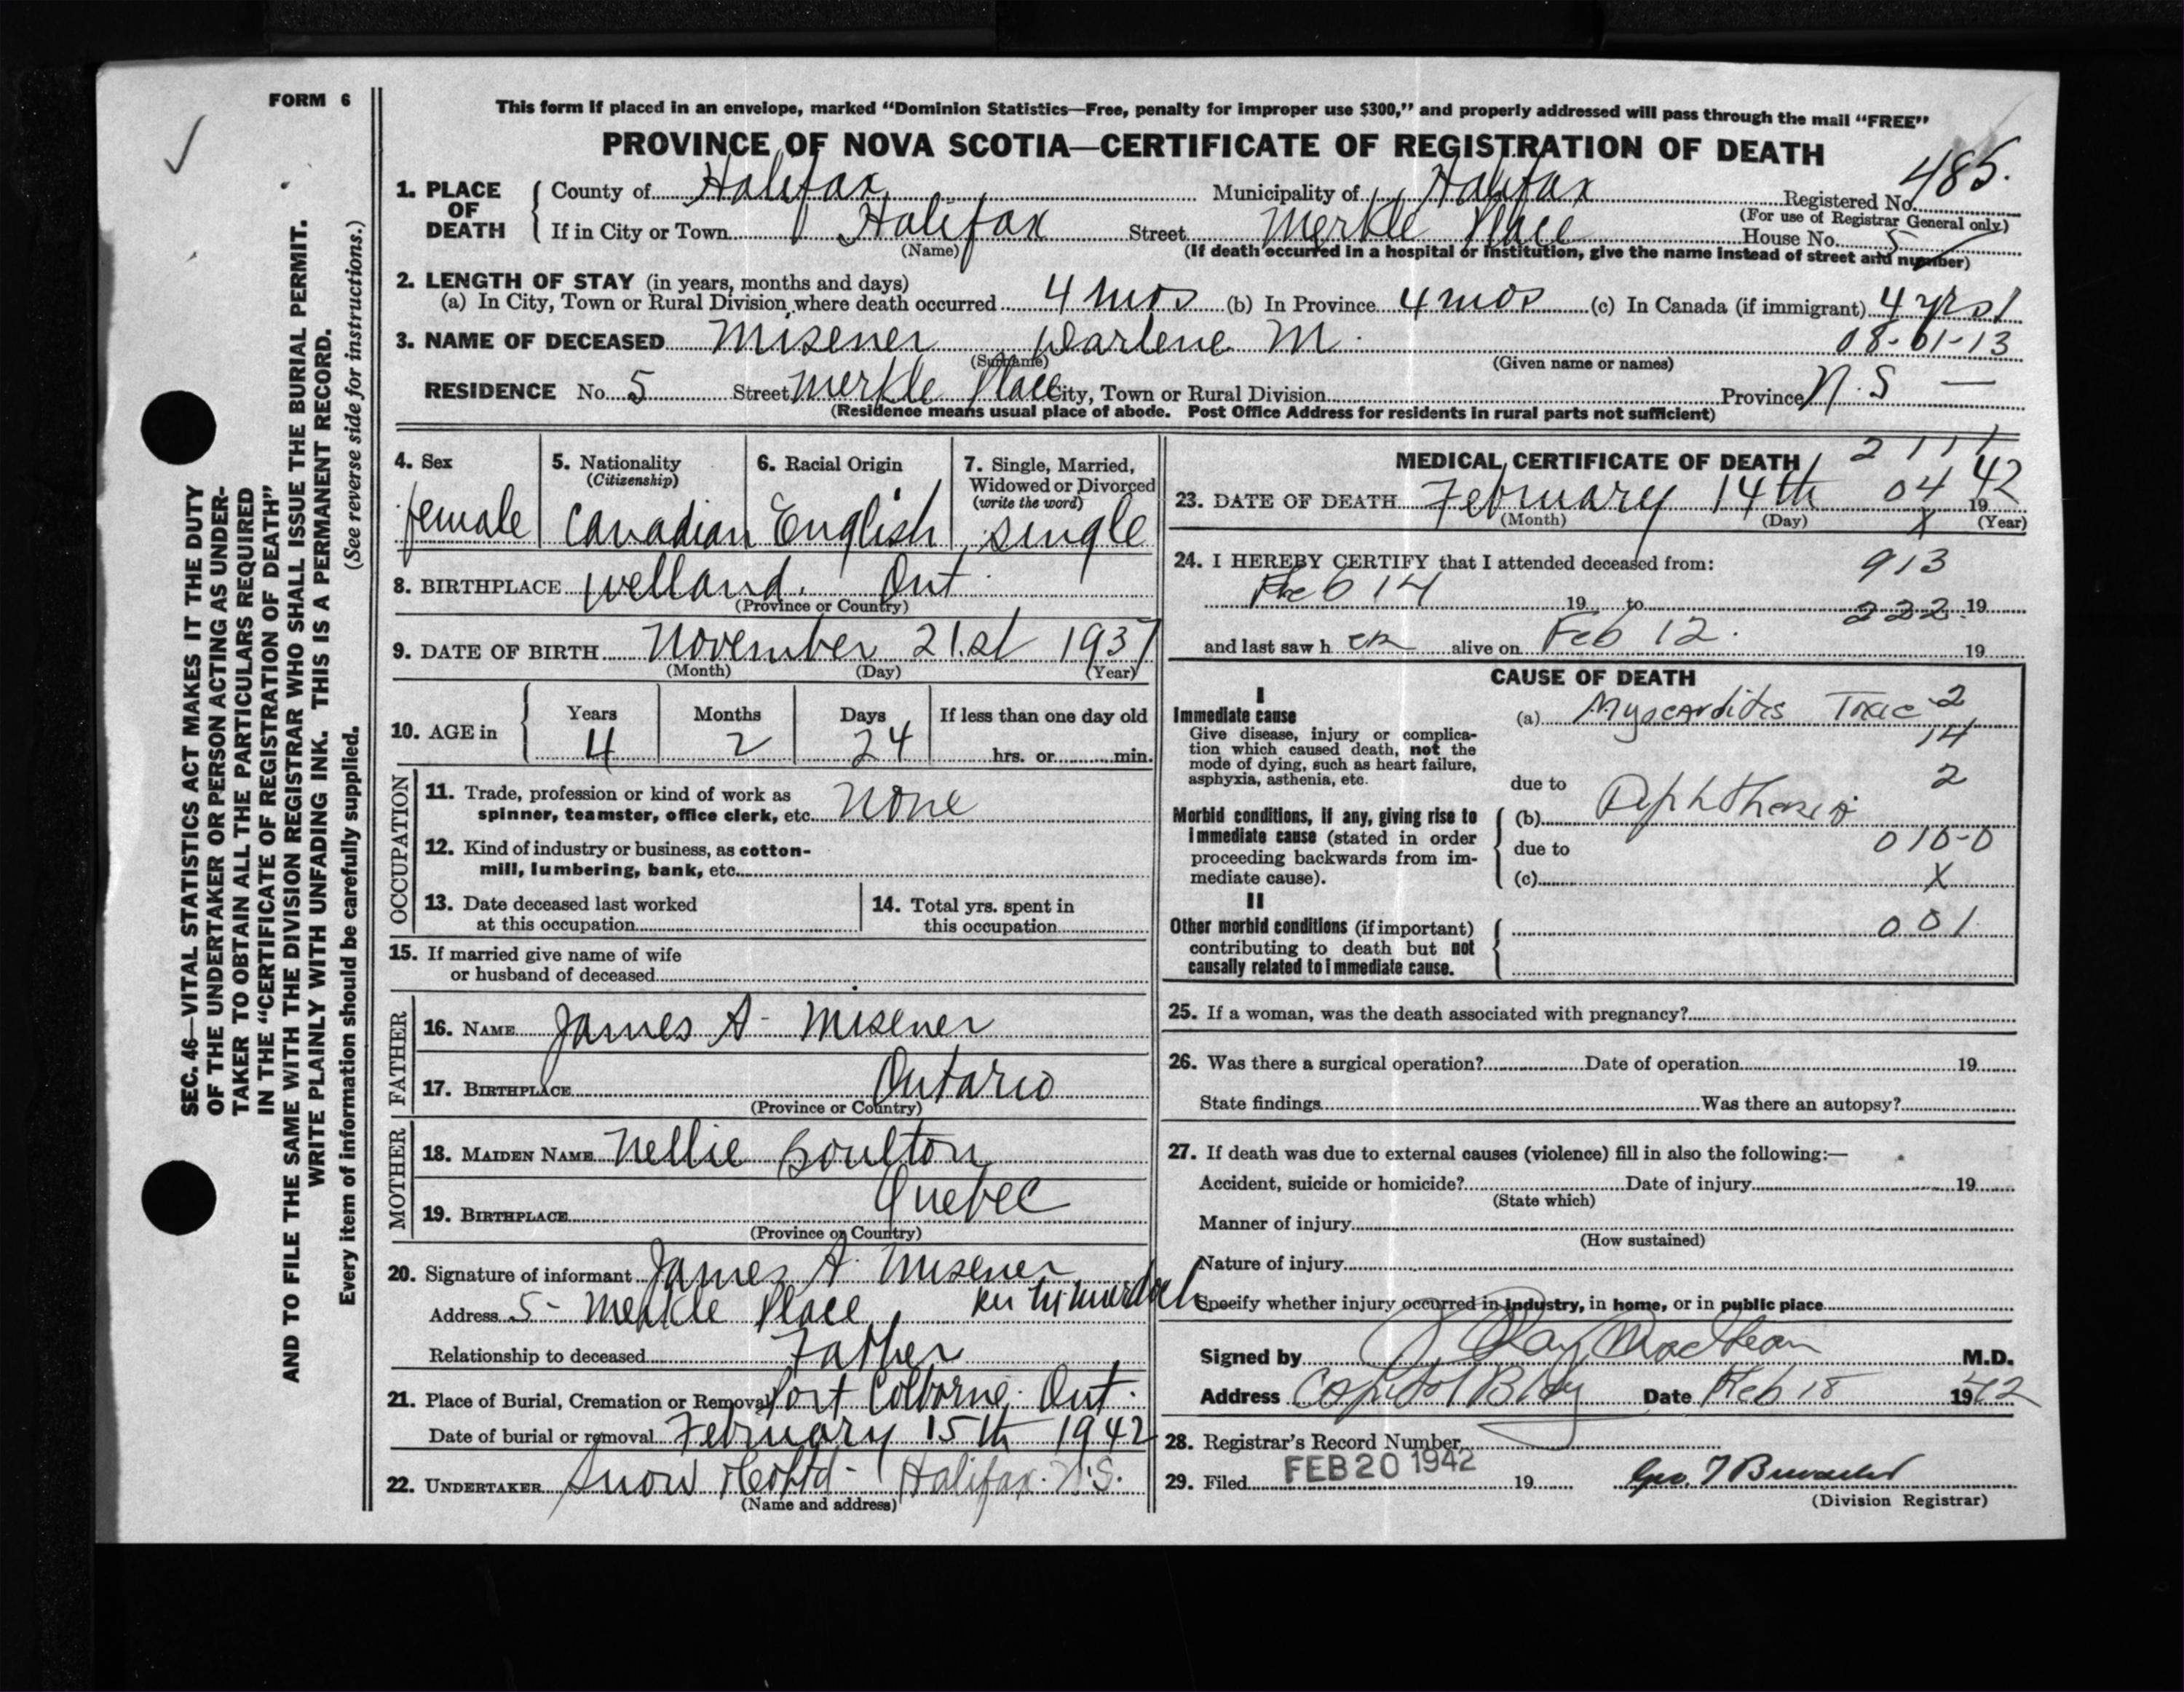 FORM 6
This form if placed in an envelope, marked “Dominion Statistics—Free, penalty for improper use $300,” and properly addressed will pass through the mail “FREE”
PROVINCE OF NOVA SCOTIA—CERTIFICATE OF REGISTRATION OF DEATH
485.
1. PLACE OF DEATH County of Halifax Municipality of Halifax Registered No.
(For use of Registrar General only)
If in City or Town Halifax Street Merkle Place House No. 5
(Name) (If death occurred in a hospital or institution, give the name instead of street and number)
2. LENGTH OF STAY (in years, months and days)
(a) In City, Town or Rural Division where death occurred 4 mos (b) In Province 4 mos (c) In Canada (if immigrant) 4 yrs
3. NAME OF DECEASED Misener Darlene M. 08-01-13
(Surname) (Given name or names)
RESIDENCE No. 5 Street Merkle Place City, Town or Rural Division Province N.S —
(Residence means usual place of abode. Post Office Address for residents in rural parts not sufficient)
4. Sex female
5. Nationality (Citizenship) Canadian
6. Racial Origin English
7. Single, Married, Widowed or Divorced (write the word) single
8. BIRTHPLACE Welland. Ont.
(Province or Country)
9. DATE OF BIRTH November 21.st 1937
(Month) (Day) (Year)
10. AGE in Years 4 Months 2 Days 24 If less than one day old hrs. or min.
OCCUPATION
11. Trade, profession or kind of work as
spinner, teamster, office clerk, etc. None
12. Kind of industry or business, as cotton-
mill, lumbering, bank, etc.
13. Date deceased last worked
at this occupation
14. Total yrs. spent in
this occupation
15. If married give name of wife
or husband of deceased
FATHER
16. NAME James A- Misener
17. BIRTHPLACE Ontario
(Province or Country)
MOTHER
18. MAIDEN NAME Nellie Boulton
19. BIRTHPLACE Quebec
(Province or Country)
20. Signature of informant James A. Misener
Address 5- Merkle Place
Relationship to deceased Father
21. Place of Burial, Cremation or Removal Port Colborne, Ont.
Date of burial or removal February 15th 1942
22. UNDERTAKER Snow & Co Ltd - Halifax. N.S.
(Name and address)
MEDICAL CERTIFICATE OF DEATH
2 1 1 1
23. DATE OF DEATH February 14th 04 19 42
(Month) (Day) X (Year)
24. I HEREBY CERTIFY that I attended deceased from: 913
Feb 14 19 to 222. 19
and last saw h er alive on Feb 12. 19
CAUSE OF DEATH
I
Immediate cause
Give disease, injury or complica-
tion which caused death, not the
mode of dying, such as heart failure,
asphyxia, asthenia, etc.
(a) Myocarditis Toxic 2
14
due to 2
Morbid conditions, if any, giving rise to
immediate cause (stated in order
proceeding backwards from im-
mediate cause).
(b) Diphtheria
due to 010-0
(c) X
II
Other morbid conditions (if important)
contributing to death but not
causally related to immediate cause.
001
25. If a woman, was the death associated with pregnancy?
26. Was there a surgical operation? Date of operation 19
State findings Was there an autopsy?
27. If death was due to external causes (violence) fill in also the following:—
Accident, suicide or homicide? Date of injury 19
(State which)
Manner of injury
(How sustained)
Nature of injury
Specify whether injury occurred in industry, in home, or in public place
Signed by M.D.
Address Capitol Bldg Date Feb 18 1942
28. Registrar's Record Number
29. Filed FEB 20 1942 19
(Division Registrar)
SEC. 46—VITAL STATISTICS ACT MAKES IT THE DUTY
OF THE UNDERTAKER OR PERSON ACTING AS UNDER-
TAKER TO OBTAIN ALL THE PARTICULARS REQUIRED
IN THE “CERTIFICATE OF REGISTRATION OF DEATH”
AND TO FILE THE SAME WITH THE DIVISION REGISTRAR WHO SHALL ISSUE THE BURIAL PERMIT.
WRITE PLAINLY WITH UNFADING INK. THIS IS A PERMANENT RECORD.
Every item of information should be carefully supplied. (See reverse side for instructions.)